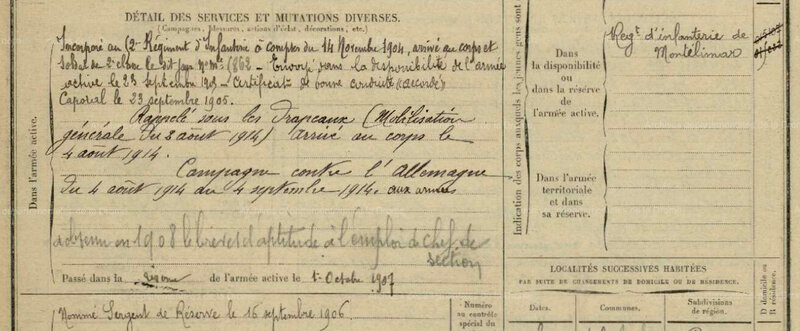 DÉTAIL DES SERVICES ET MUTATIONS DIVERSES.
(Campagnes, blessures, actions d'éclat, décorations, etc.)
Incorporé au Régiment d'Infanterie à compter du 14 Novembre 1904, arrivé au corps et
soldat de 2e classe le dit jour. 1862 - Envoyé dans la disponibilité de l'armée
active le 23 septembre - Certificat de bonne conduite "accordé"
Caporal le 23 septembre 1905.
Rappelé sous les drapeaux (Mobilisation
générale du 2 août 1914) arrivé au corps le
4 août 1914.
Campagne contre l'Allemagne
du 4 août 1914 au 4 septembre 1914. aux armées
a obtenu en 1908 le brevet d'aptitude à l'emploi de chef de
section
Passé dans la réserve de l'armée active le 1er Octobre 1907
Nommé Sergent de Réserve le 16 septembre 1906.
Dans l'armée active.
Indication des corps auxquels les jeunes gens sont
Dans
la disponibilité
ou
dans la réserve
de
l'armée active.
Regt d'infanterie de
Montélimar
Dans l'armée
territoriale
et dans
sa réserve.
LOCALITÉS SUCCESSIVES HABITÉES
PAR SUITE DE CHANGEMENTS DE DOMICILE OU DE RÉSIDENCE.
D domicile ou
R résidence.
Numéro
au contrôle
spécial du
Dates.
Communes.
Subdivisions
de région.